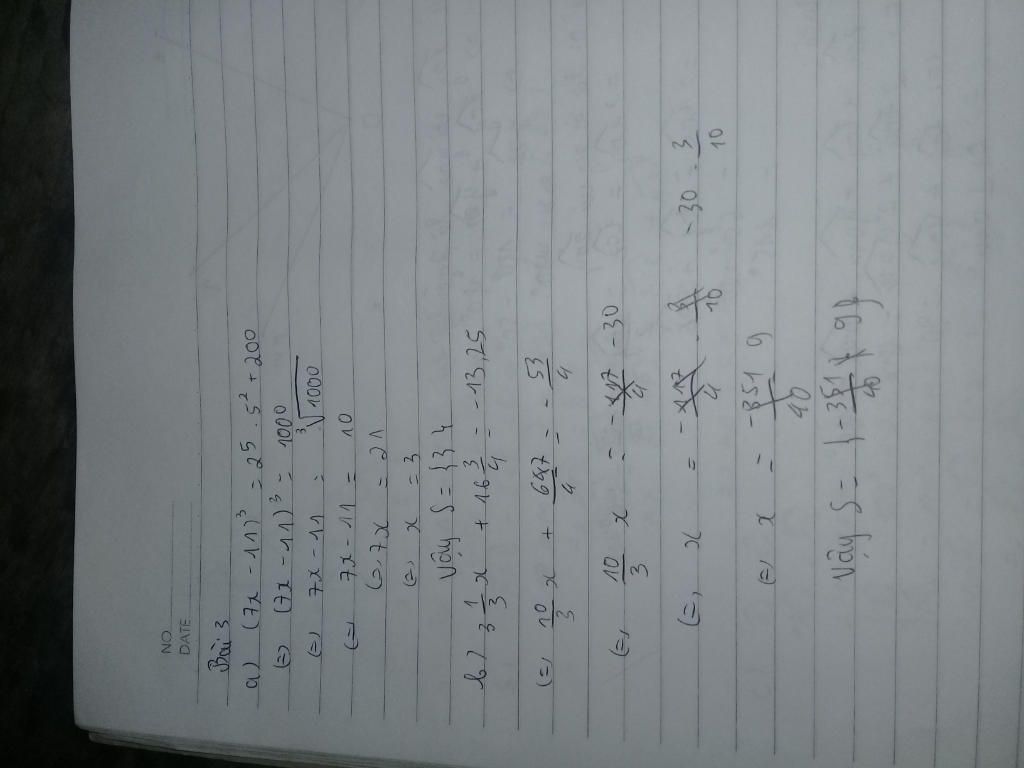 NO
DATE
Bài 3
a) (7x - 11)³ = 25 . 5² + 200
(=) (7x - 11)³ = 1000
(=) 7x - 11 = ³√1000
(=) 7x - 11 = 10
(=) 7x = 21
(=) x = 3
Vậy S = {3}
b) 3 1/3 x + 16 3/4 = -13,25
(=) 10/3 x + 67/4 = - 53/4
(=) 10/3 x = -30
(=) x = -30 . 3/10
(=) x = - 9
Vậy S = {- 9}